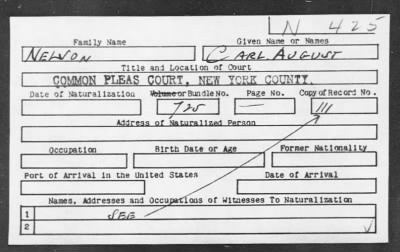 N 425
Family Name Given Name or Names
NELSON CARL AUGUST
Title and Location of Court
COMMON PLEAS COURT, NEW YORK COUNTY.
Date of Naturalization Volume or Bundle No. Page No. Copy of Record No.
725 — 111
Address of Naturalized Person
Occupation Birth Date or Age Former Nationality
Port of Arrival in the United States Date of Arrival
Names, Addresses and Occupations of Witnesses To Naturalization
1 SEE
2